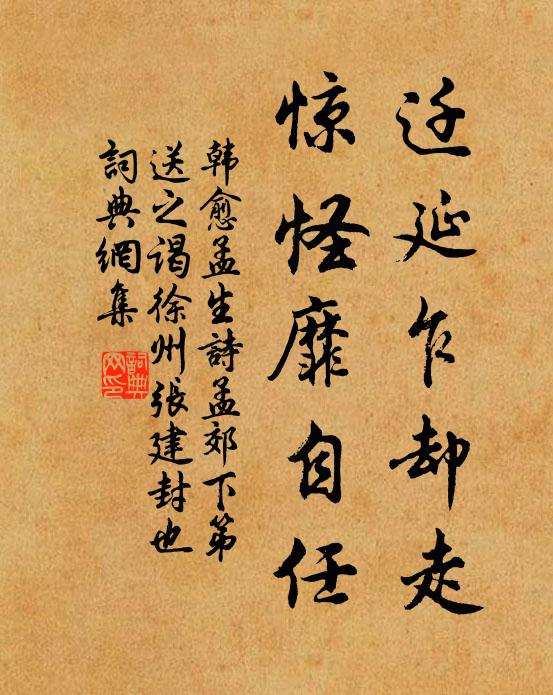 迁延乍却走
惊怪靡自任
韩愈孟生詩孟郊下第
送之谒徐州張建封也
詞典網集
詞典
网印